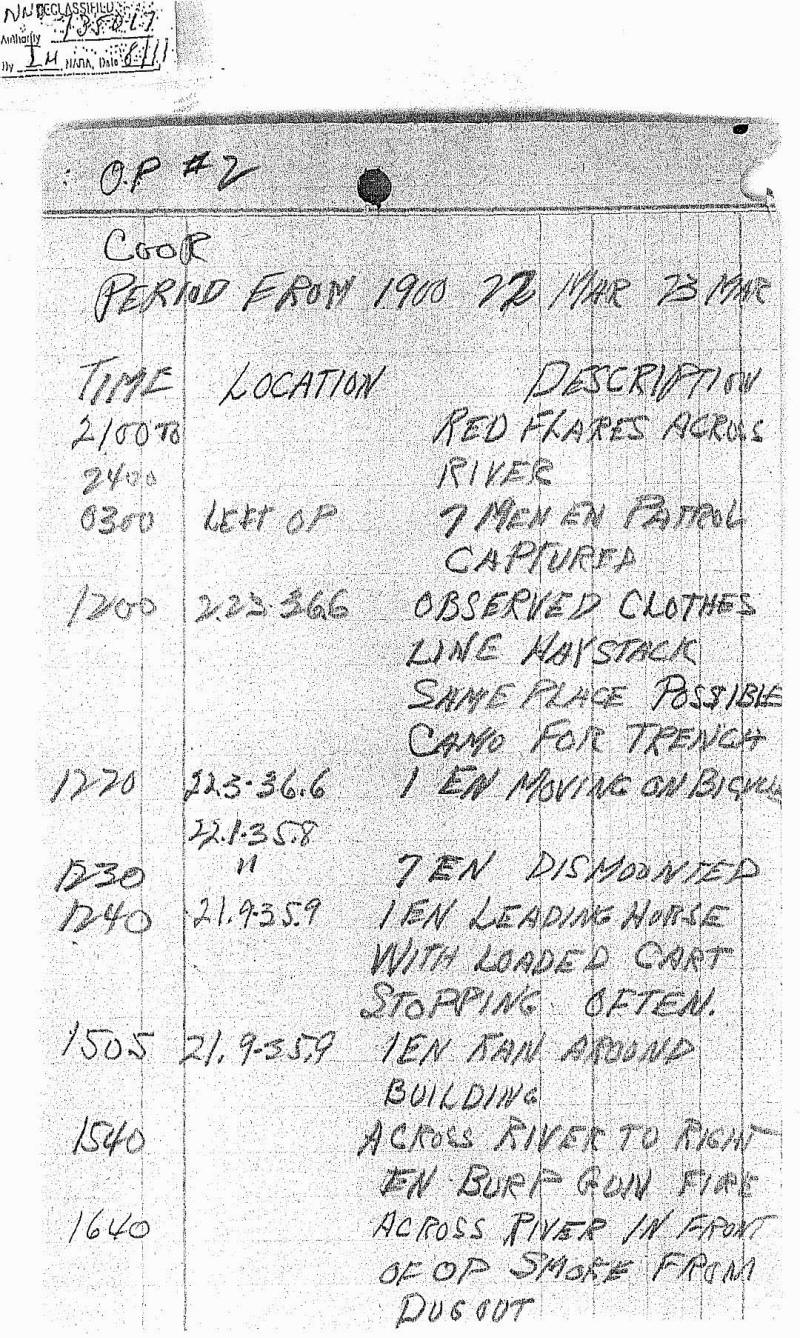 NND DECLASSIFIED
Authority 735017
By IH NARA, Date 8/11
O.P #2
COOR
PERIOD FROM 1900 22 MAR 23 MAR
TIME LOCATION DESCRIPTION
2100 TO RED FLARES ACROSS
2400 RIVER
0300 LEFT OP 7 MEN EN PATROL
CAPTURED
1200 22.3-36.6 OBSERVED CLOTHES
LINE HAYSTACK
SAME PLACE POSSIBLE
CAMO FOR TRENCH
1220 22.3-36.6 1 EN MOVING ON BICYCLE
22.1-35.8
1230 " 7 EN DISMOUNTED
1240 21.9-35.9 1 EN LEADING HORSE
WITH LOADED CART
STOPPING OFTEN.
1505 21.9-35.9 1 EN RAN AROUND
BUILDING
1540 ACROSS RIVER TO RIGHT
EN BURP GUN FIRE
1640 ACROSS RIVER IN FRONT
OF OP SMOKE FROM
DUGOUT